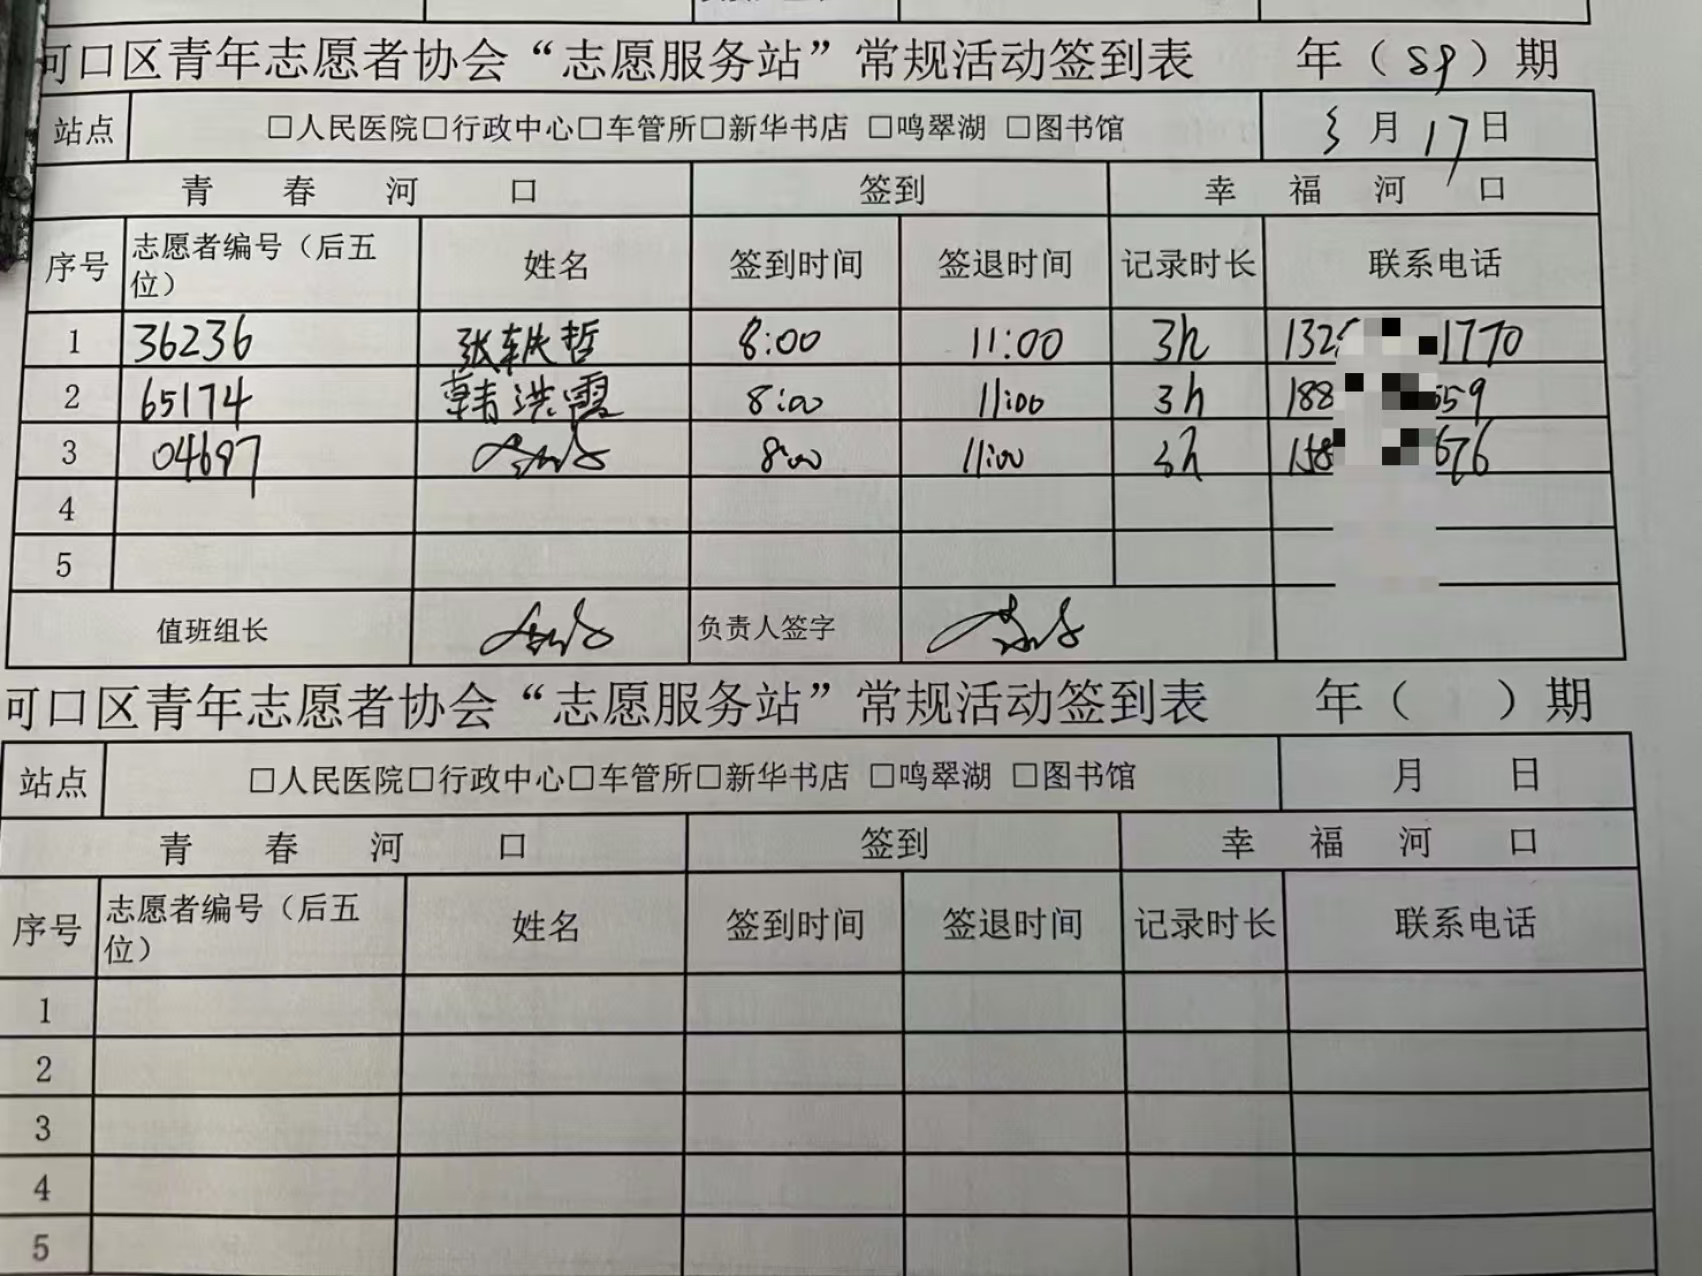 河口区青年志愿者协会“志愿服务站”常规活动签到表 年（59）期
站点 □人民医院□行政中心□车管所□新华书店 □鸣翠湖 □图书馆 3月17日
青 春 河 口 签到 幸 福 河 口
序号 志愿者编号（后五位） 姓名 签到时间 签退时间 记录时长 联系电话
1 36236 张轶哲 8:00 11:00 3h 132 1770
2 65174 韩洪霞 8:00 11:00 3h 188 659
3 04697 8:00 11:00 3h 158 676
4
5
值班组长 负责人签字
河口区青年志愿者协会“志愿服务站”常规活动签到表 年（ ）期
站点 □人民医院□行政中心□车管所□新华书店 □鸣翠湖 □图书馆 月 日
青 春 河 口 签到 幸 福 河 口
序号 志愿者编号（后五位） 姓名 签到时间 签退时间 记录时长 联系电话
1
2
3
4
5